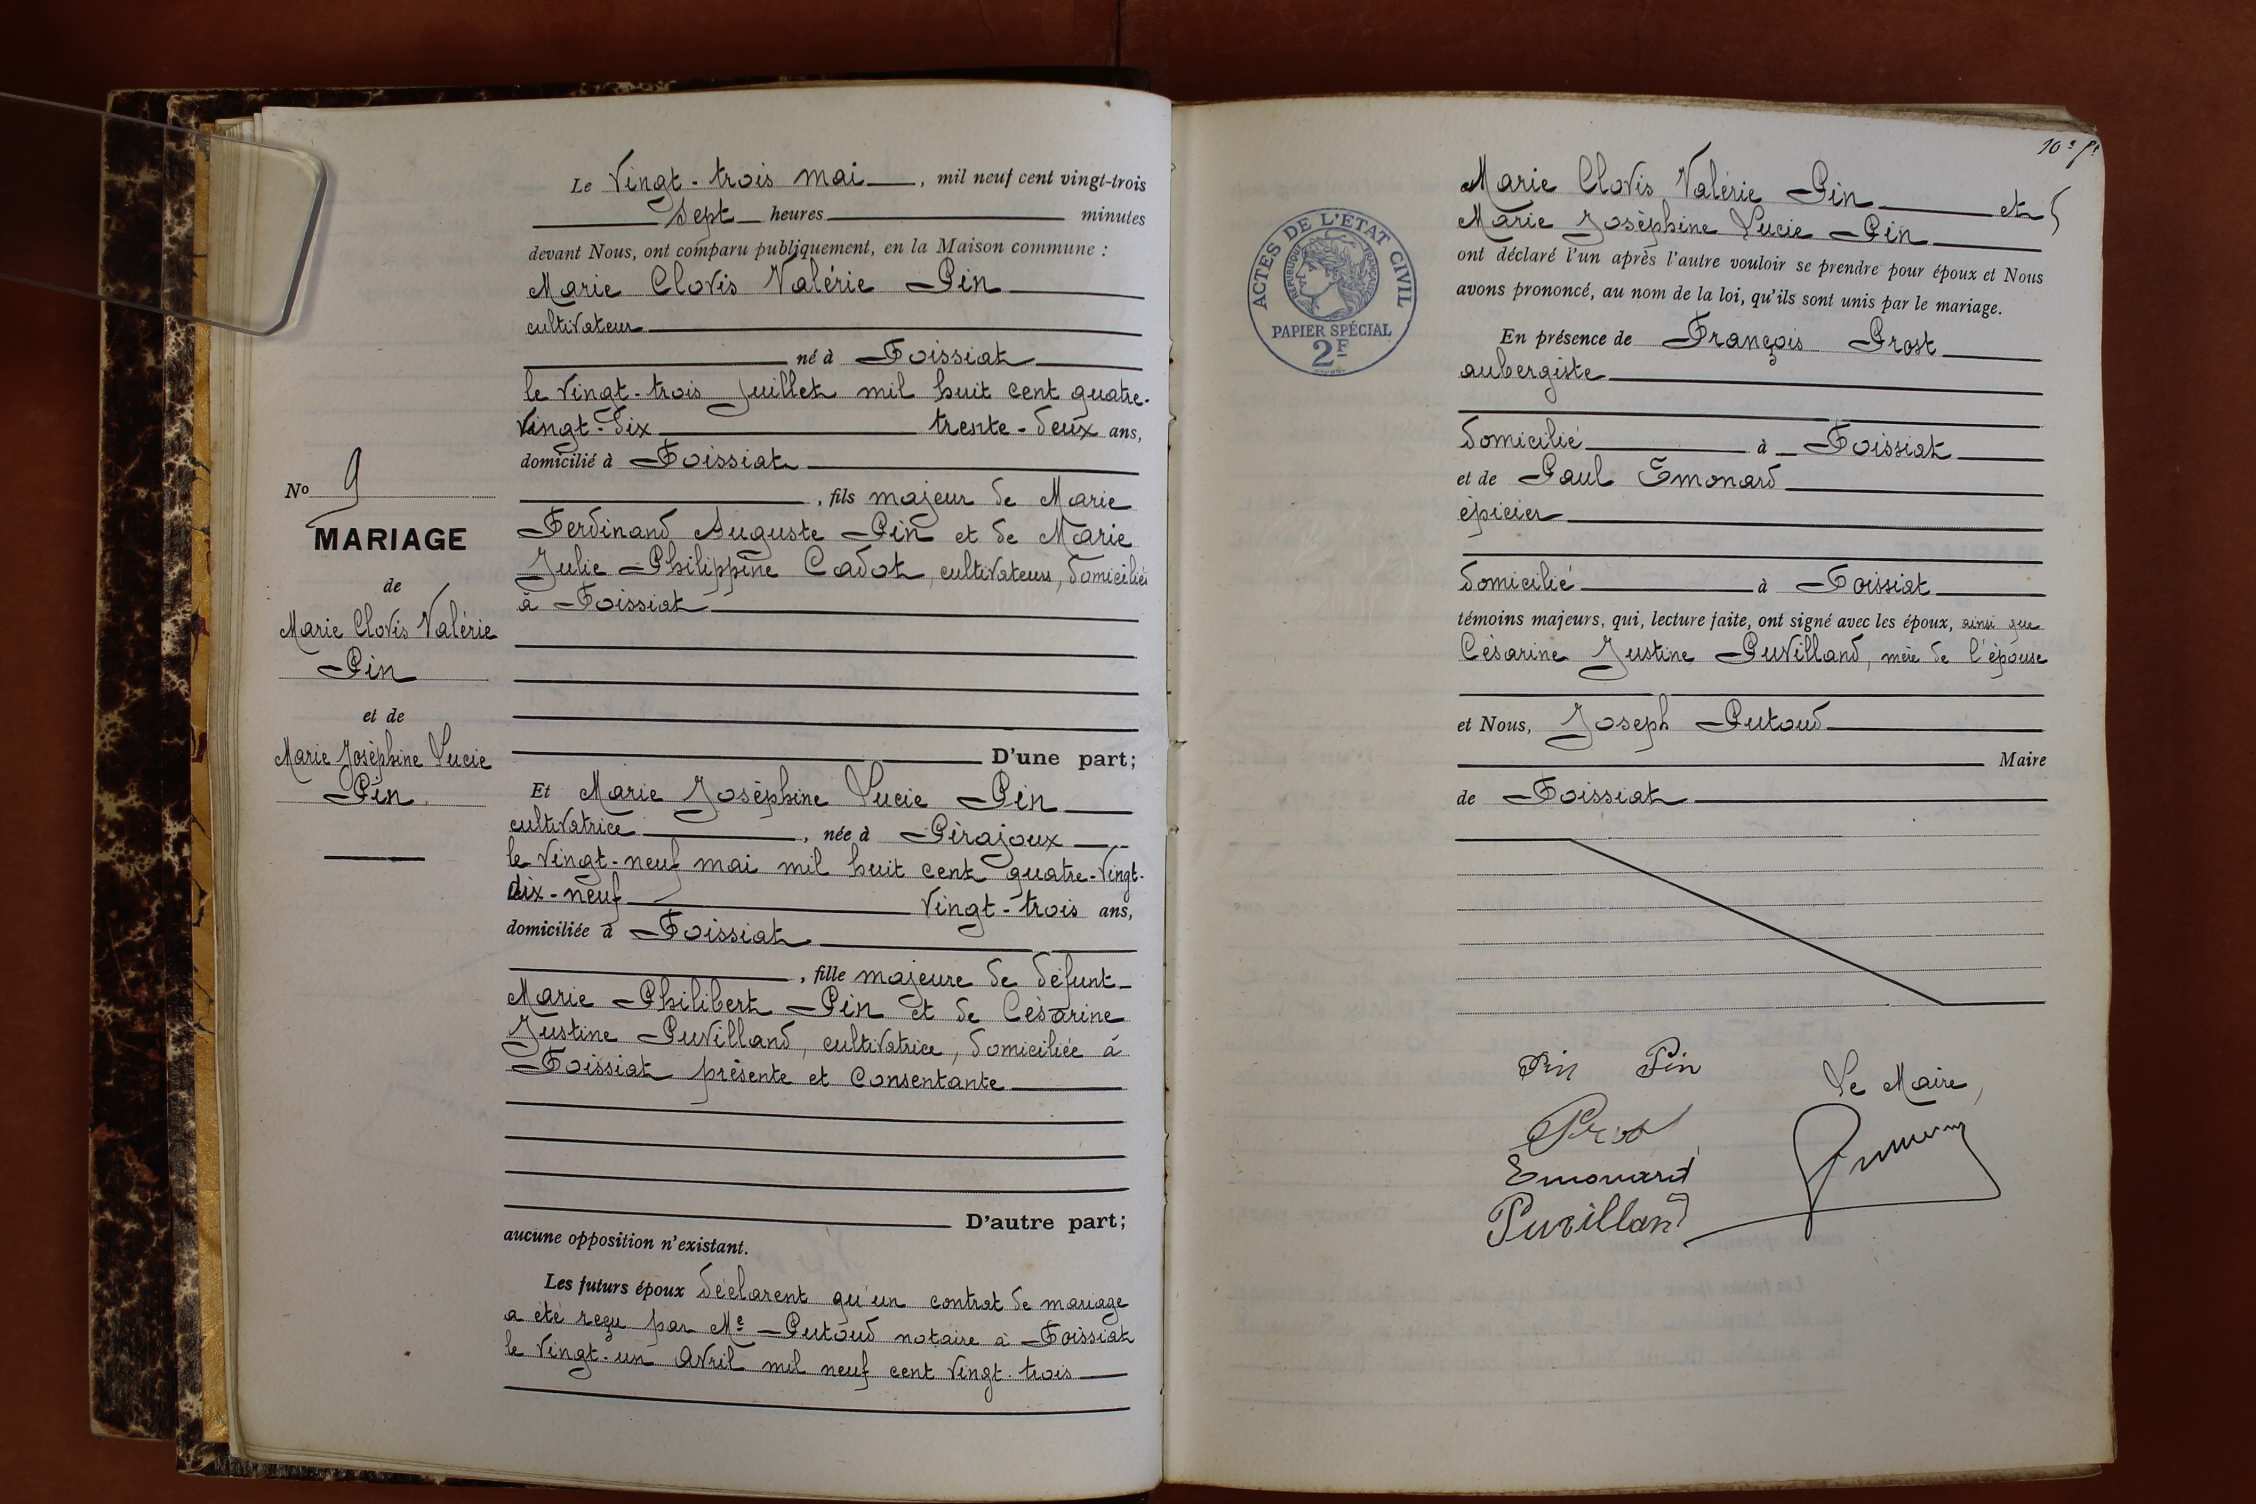 Le Vingt-trois mai, mil neuf cent vingt-trois
sept heures minutes
devant Nous, ont comparu publiquement, en la Maison commune :
Marie Clovis Valérie Pin
cultivateur
né à Foissiat
le vingt-trois Juillet mil huit cent quatre-
vingt-dix trente-deux ans,
domicilié à Foissiat
, fils majeur de Marie
Ferdinand Auguste Pin et de Marie
Julie Philippine Cadot, cultivateurs, domiciliés
à Foissiat
D'une part;
Et Marie Joséphine Lucie Pin
cultivatrice, née à Pirajoux
le vingt-neuf mai mil huit cent quatre-vingt-
dix-neuf vingt-trois ans,
domiciliée à Foissiat
, fille majeure de défunt
Marie Philibert Pin et de Césarine
Justine Puvilland, cultivatrice, domiciliée à
Foissiat présente et consentante
D'autre part;
aucune opposition n'existant.
Les futurs époux déclarent qu'un contrat de mariage
a été reçu par Me Putoud notaire à Foissiat
le vingt-un Avril mil neuf cent vingt-trois
No 9
MARIAGE
de
Marie Clovis Valérie
Pin
et de
Marie Joséphine Lucie
Pin
Marie Clovis Valérie Pin et
Marie Joséphine Lucie Pin
ont déclaré l'un après l'autre vouloir se prendre pour époux et Nous
avons prononcé, au nom de la loi, qu'ils sont unis par le mariage.
En présence de François Prost
aubergiste
domicilié à Foissiat
et de Paul Emonard
épicier
domicilié à Foissiat
témoins majeurs, qui, lecture faite, ont signé avec les époux, ainsi que
Césarine Justine Puvilland, mère de l'épouse
et Nous, Joseph Putoud
Maire
de Foissiat
Pin Pin
Le Maire,
Prost
Emonard
Puvilland
ACTES DE L'ETAT CIVIL
REPUBLIQUE FRANÇAISE
PAPIER SPÉCIAL
2F